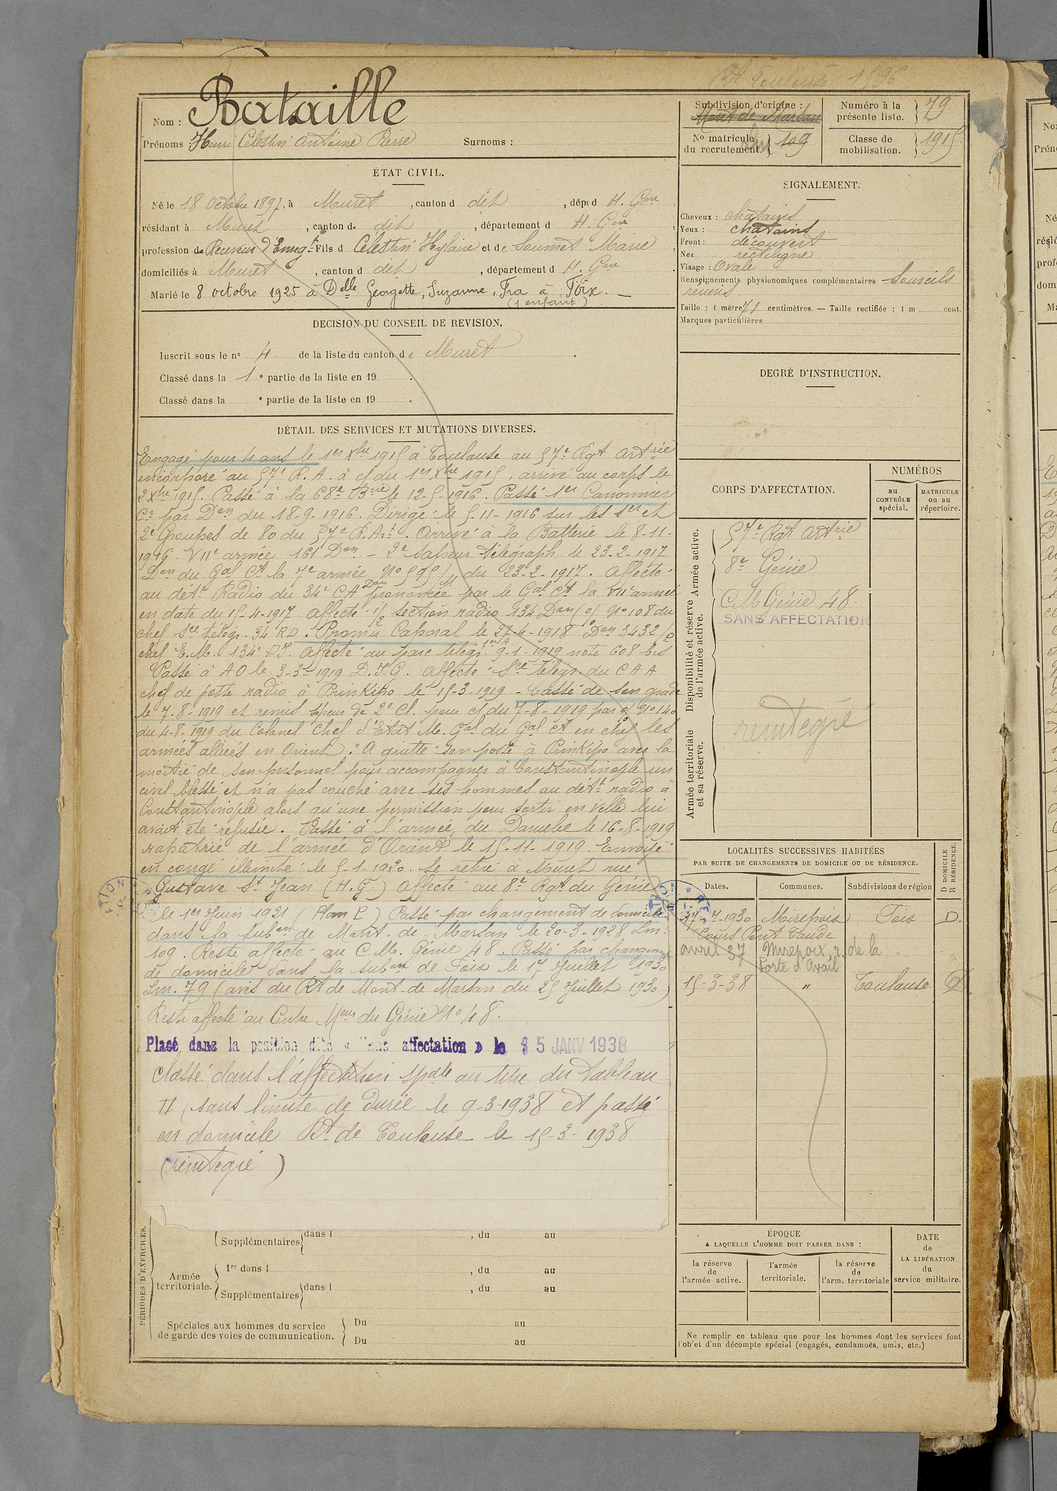 Nom : Bataille
Prénoms Henri Célestin Antoine Pierre Surnoms :
ÉTAT CIVIL.
Né le 18 octobre 1897, à Muret, canton d dit, dépt d H. Gne
résidant à Muret, canton d dit, département d H. Gne
profession de Receveur d'Enregt Fils d Célestin Hylaire et de Soumet Marie
domiciliés à Muret, canton d dit, département d H. Gne
Marié le 8 octobre 1925 à Delle Georgette, Suzanne, Fra à Foix. —
(1 enfant)
DECISION DU CONSEIL DE REVISION.
Inscrit sous le no 4 de la liste du canton de Muret.
Classé dans la 1e partie de la liste en 19 .
Classé dans la e partie de la liste en 19 .
DÉTAIL DES SERVICES ET MUTATIONS DIVERSES.
Engagé pour 4 ans le 1er Xbre 1915 à Toulouse au 57e Rgt Artrie
incorporé au 57e R.A. à c/ du 1er Xbre 1915, arrivé au corps le
2 Xbre 1915. Passé à la 68e Brie le 12-5-1916. Passé 1er Canonnier
Ct par Don du 18-9-1916. Dirigé le 5-11-1916 sur les 1er et
2e Groupes de 80 du 57e R.Arie. Arrivé à la Batterie le 8-11-
1916. VIIe armée 161 Don. - 2e Sapeur télégraph. le 23-2-1917
Don du Gal Ct la 7e armée No 5951/11 du 23-2-1917. Affecté
au détt Radio du 34e CA Don prononcée par le Gal Ct la VIIe armée
en date du 15-4-1917. Affecté section radio 134 Don No 108 du
chef Sce télégr. 34 RD. Promu Caporal le 27-4-1918 Don 3432/o
chef E.M. 134e DI. Affecté au parc télégr. 9-1-1919 note 608 bis
Passé à AO le 3-3-1919 D.I.G. Affecté Sce télégr. du C A A
chef de poste radio à Prinkipo le 15-3-1919 - Cassé de son grade
le 7-8-1919 et remis sapeur de 2e Cl. pour c/ du 7-8-1919 par o/ No 140
du 4-8-1919 du Colonel Chef d'Etat M. Gal du Gal Ct en chef les
armées alliées en Orient. "A quitté son poste à Prinkipo avec la
moitié de son personnel pour accompagner à Constantinople un
civil blessé et n'a pas couché avec ses hommes au détt radio à
Constantinople alors qu'une permission pour sortir en ville lui
avait été refusée. Passé à l'armée du Danube le 16-8-1919
rapatrié de l'armée d'Orient le 15-11-1919. Envoyé
en congé illimité le 5-1-1920. Se retire à Muret rue
Gustave St Jean (H.G.) Affecté au 8e Rgt du Génie
le 1er Juin 1921 (Plan P) Passé par changement de domicile
dans la subon de Mont-de-Marsan le 20-3-1928 Lm.
109. Reste affecté au C.M. Génie 48. Passé par changemt
de domicile dans la subon de Foix le 17 Juillet 1930
Lm. 79 (avis du Rt de Mont-de-Marsan du 25 Juillet 1930)
Reste affecté au Centre Mon du Génie No 48.
Placé dans la position dite « Sans affectation » le 15 JANV 1938
Classé dans l'affectation spale au titre du tableau
II (sans limite de durée le 9-3-1938 et passé
en domicile Rt de Toulouse le 15-3-1938
(réintégré)
PÉRIODES D'EXERCICES.
Supplémentaires dans l , du au
Armée territoriale.
1re dans l , du au
Supplémentaires dans l , du au
Spéciales aux hommes du service
de garde des voies de communication.
Du au
Du au
Rt Toulouse 1596
Subdivision d'origine :
Mont de Marsan
No matricule du recrutement. Lm 109
Numéro à la présente liste. 79
Classe de mobilisation. 1915
SIGNALEMENT.
Cheveux : châtains
Yeux : châtains
Front : découvert
Nez rectiligne
Visage : Ovale
Renseignements physionomiques complémentaires Sourcils
réunis
Taille : 1 mètre 71 centimètres. — Taille rectifiée : 1 m cent.
Marques particulières
DEGRÉ D'INSTRUCTION.
CORPS D'AFFECTATION.
NUMÉROS
au CONTRÔLE spécial.
MATRICULE ou au répertoire.
Armée active.
57e Rgt Artrie
8e Génie
Disponibilité et réserve de l'armée active.
C.M. Génie 48
SANS AFFECTATION
réintégré
Armée territoriale et sa réserve.
LOCALITÉS SUCCESSIVES HABITÉES
PAR SUITE DE CHANGEMENTS DE DOMICILE OU DE RÉSIDENCE.
Dates. Communes. Subdivisions de région
D DOMICILE
R RÉSIDENCE.
17-7-1930 Mirepoix Foix D.
Cours Pont Taude
avril 37 Mirepoix, r. de la
Porte d'Avail
15-3-38 " Toulouse D
ÉPOQUE
A LAQUELLE L'HOMME DOIT PASSER DANS :
DATE de LA LIBÉRATION du service militaire.
la réserve de l'armée active.
l'armée territoriale.
la réserve de l'arm. territoriale
Ne remplir ce tableau que pour les hommes dont les services font
l'objet d'un décompte spécial (engagés, condamnés, omis, etc.)